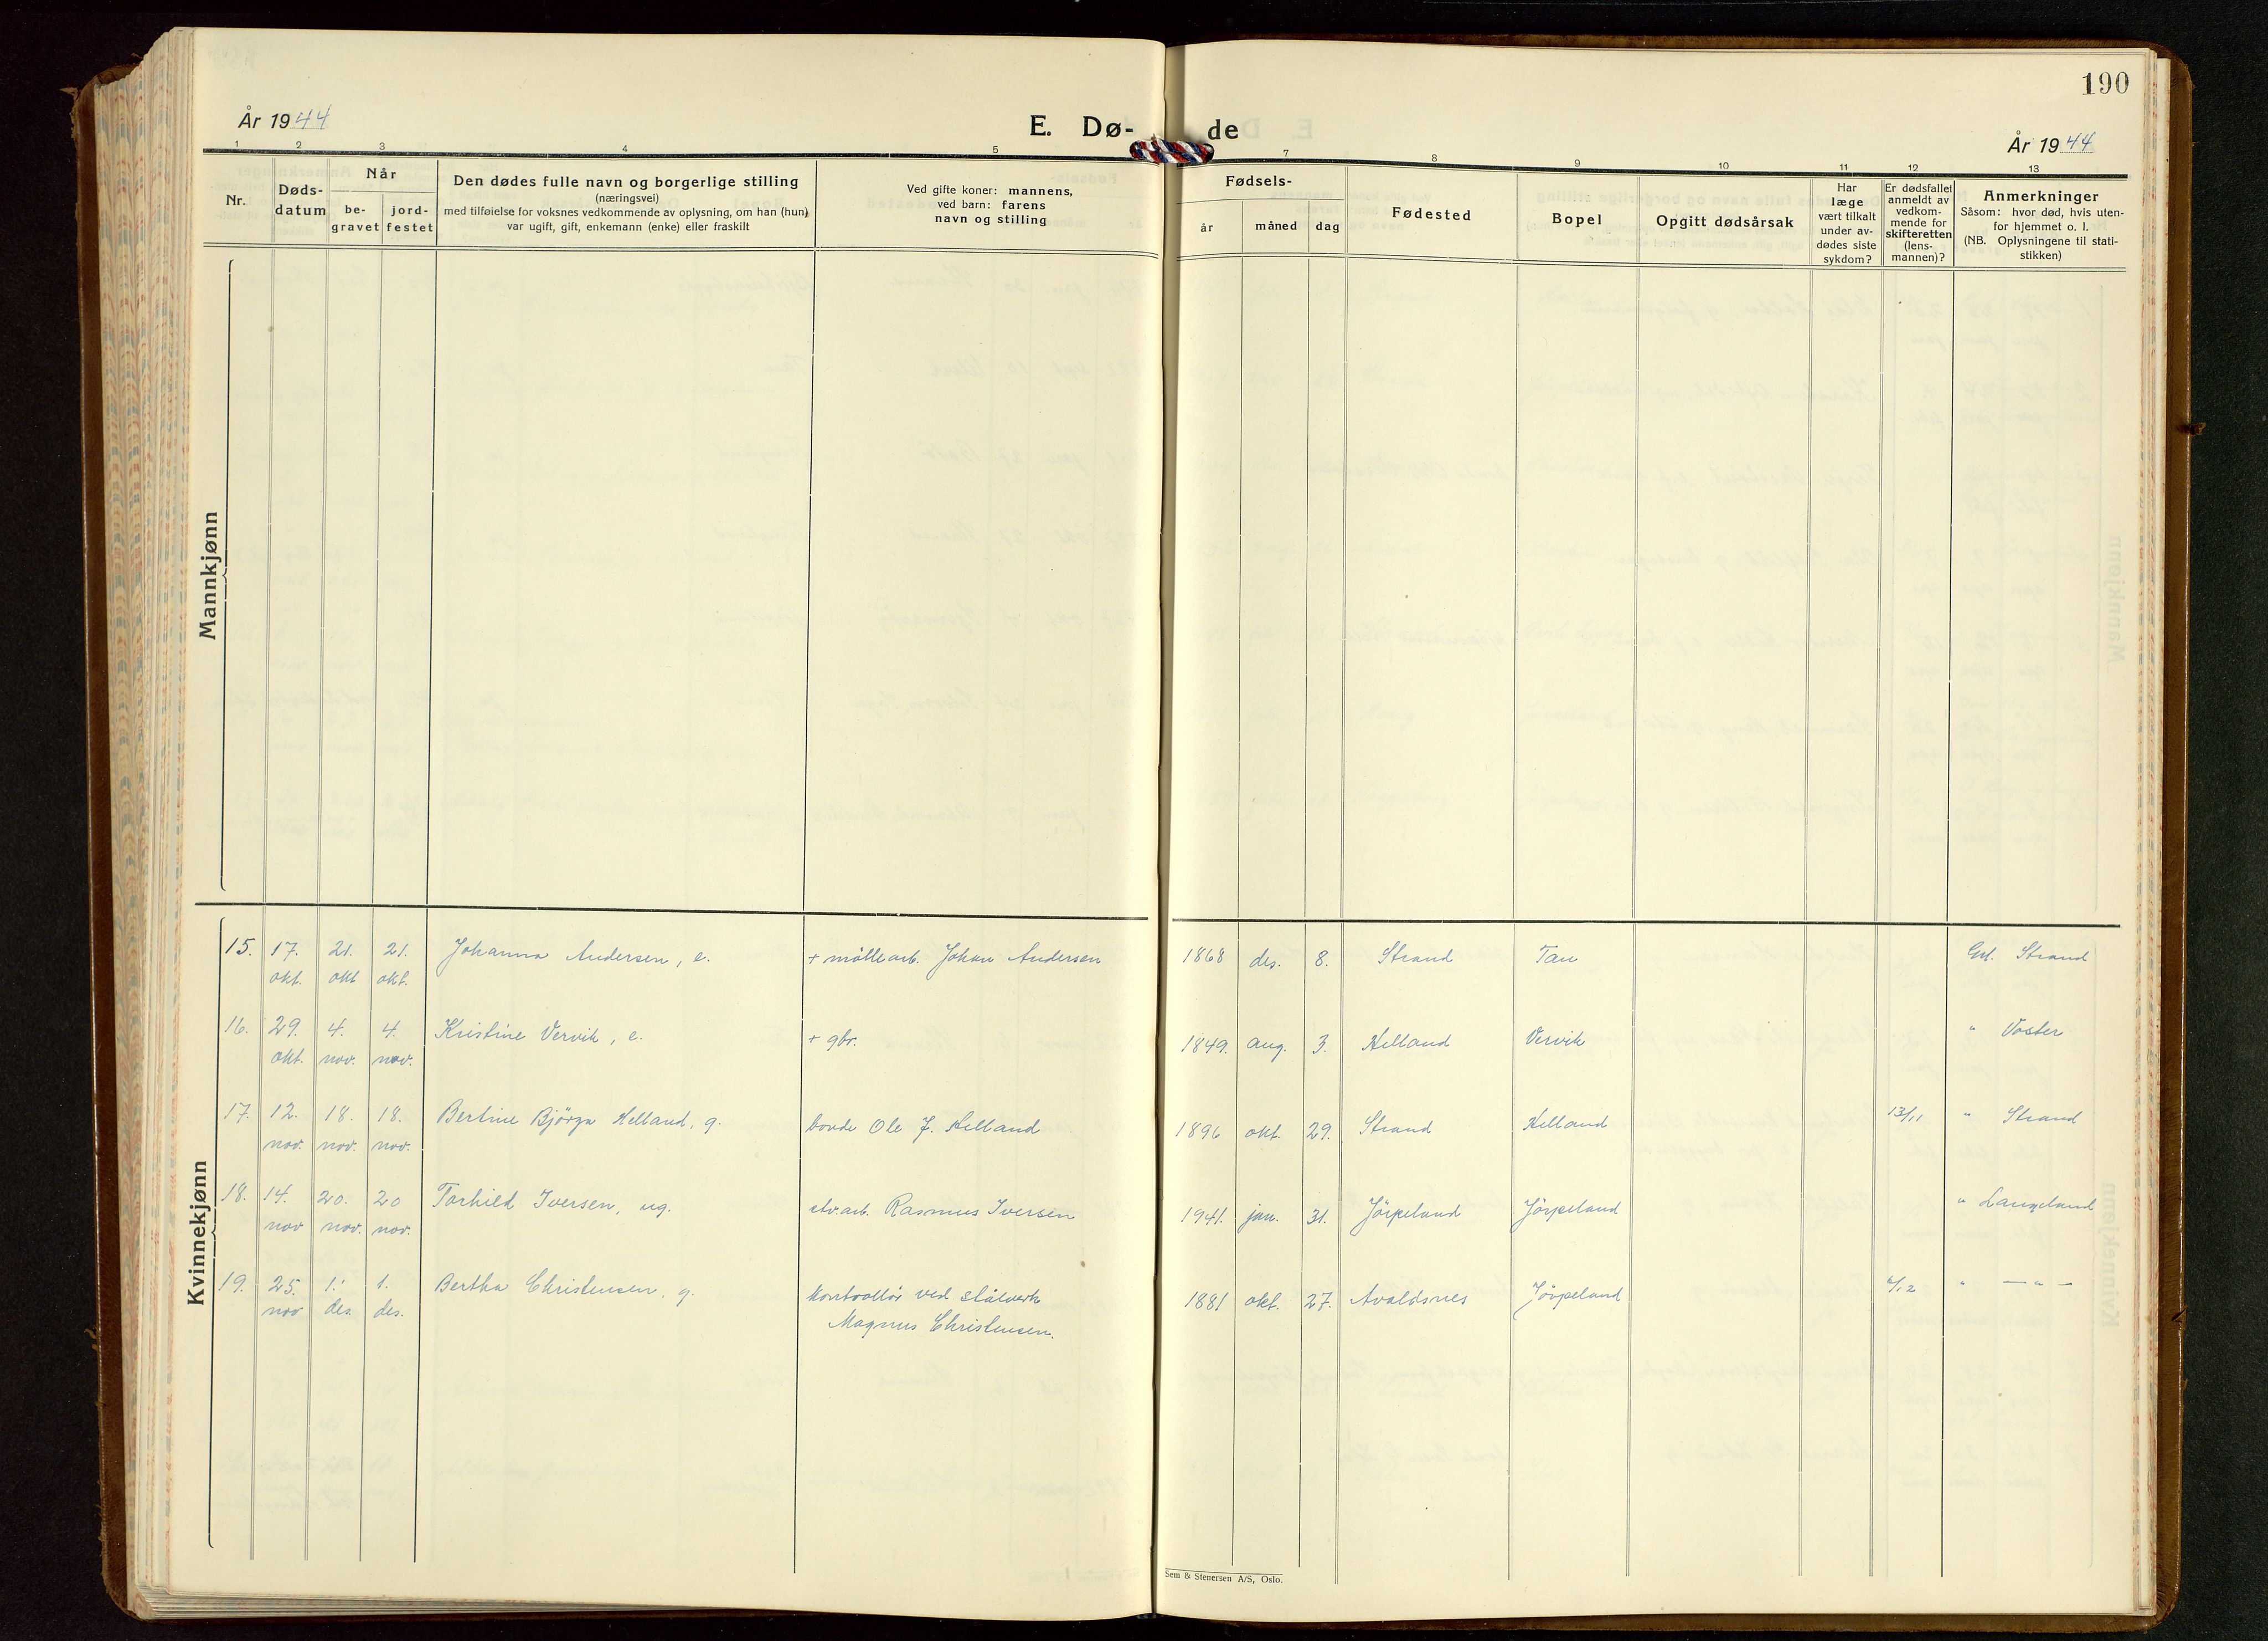 190
År 1944
E. Dø-de
År 1944
1 2 3 4 5 7 8 9 10 11 12 13
Nr.
Døds-
datum
Når
be-
gravet
jord-
festet
Den dødes fulle navn og borgerlige stilling
(næringsvei)
med tilføielse for voksnes vedkommende av oplysning, om han (hun)
var ugift, gift, enkemann (enke) eller fraskilt
Ved gifte koner: mannens,
ved barn: farens
navn og stilling
Fødsels-
år
måned
dag
Fødested
Bopel
Opgitt dødsårsak
Har
læge
vært tilkalt
under av-
dødes siste
sykdom?
Er dødsfallet
anmeldt av
vedkom-
mende for
skifteretten
(lens-
mannen)?
Anmerkninger
Såsom: hvor død, hvis uten-
for hjemmet o. l.
(NB. Oplysningene til stati-
stikken)
Mannkjønn
Kvinnekjønn
15. 17. 21. 21. Johanna Andersen, e. + möllearb. Johan Andersen 1868 des. 8. Strand Tau Grl. Strand
okt. okt okt.
16. 29. 4. 4. Kristine Vervik, e. + gbr. 1849. aug. 3. Helland Vervik " Voster
okt. nov. nov.
17. 12. 18. 18. Bertine Bjørga Helland, g. bonde Ole J. Helland 1896 okt. 29. Strand Helland 13/11 " Strand
nov. nov. nov.
18. 14. 20. 20 Torhild Iversen, ug. stv.arb. Rasmus Iversen 1941. jan. 31. Jörpeland Jörpeland " Langeland
nov nov. nov.
19. 25. 1. 1. Bertha Christensen, g. kontrollör ved stålverk 1881 okt. 27. Avaldsnes Jörpeland /12 " — " —
nov des. des. Magnus Christensen.
Sem & Stenersen A/S, Oslo.